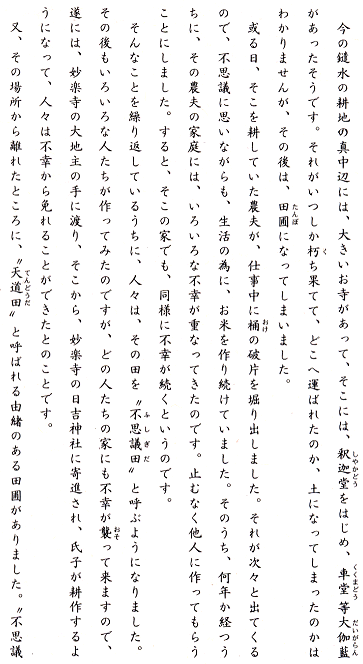 今の鑓水の耕地の真中辺には、大きいお寺があって、そこには、釈迦堂をはじめ、車堂等大伽藍
があったそうです。それがいつしか朽ち果てて、どこへ運ばれたのか、土になってしまったのかは
わかりませんが、その後は、田圃になってしまいました。
或る日、そこを耕していた農夫が、仕事中に桶の破片を堀り出しました。それが次々と出てくる
ので、不思議に思いながらも、生活の為に、お米を作り続けていました。そのうち、何年か経つう
ちに、その農夫の家庭には、いろいろな不幸が重なってきたのです。止むなく他人に作ってもらう
ことにしました。すると、そこの家でも、同様に不幸が続くというのです。
そんなことを繰り返しているうちに、人々は、その田を〝不思議田〟と呼ぶようになりました。
その後もいろいろな人たちが作ってみたのですが、どの人たちの家にも不幸が襲って来ますので、
遂には、妙楽寺の大地主の手に渡り、そこから、妙楽寺の日吉神社に寄進され、氏子が耕作するよ
うになって、人々は不幸から免れることができたとのことです。
又、その場所から離れたところに、〝天道田〟と呼ばれる由緒のある田圃がありました。〝不思議